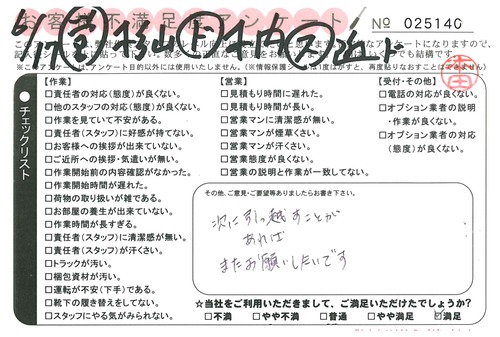 お客様不満足度アンケート
No 025140
【作業】
□責任者の対応(態度)が良くない。
□他のスタッフの対応(態度)が良くない。
□作業を見ていて不安がある。
□責任者(スタッフ)に好感が持てない。
□お客様への挨拶が出来ていない。
□ご近所への挨拶・気遣いが無い。
□作業開始前の内容確認がなかった。
□作業開始時間が遅れた。
□荷物の取り扱いが雑である。
□お部屋の養生が出来ていない。
□作業時間が長すぎる。
□責任者(スタッフ)に清潔感が無い。
□責任者(スタッフ)が汗くさい。
□トラックが汚い。
□梱包資材が汚い。
□運転が不安(下手)である。
□靴下の履き替えをしてない。
□スタッフにやる気がみられない。
【営業】
□見積もり時間に遅れた。
□見積もり時間が長い。
□営業マンに清潔感が無い。
□営業マンが煙草くさい。
□営業マンが汗くさい。
□営業態度が良くない。
□営業の説明と作業が一致してない。
【受付・その他】
□電話の対応が良くない。
□オプション業者の説明
・作業が良くない。
□オプション業者の対応
(態度)が良くない。
チェックリスト
その他、ご意見・ご要望等ありましたらお書き下さい。
次に引っ越すことが
あれば
またお願いしたいです
☆当社をご利用いただきまして、ご満足いただけたでしょうか?
□不満 □やや不満 □普通 □やや満足 ☑満足